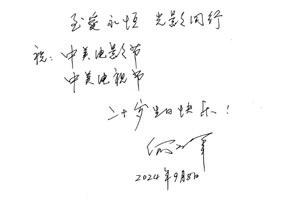 至爱永恒 光影同行
祝：中美电影节
中美电视节
二十岁生日快乐！
2024年9月8日